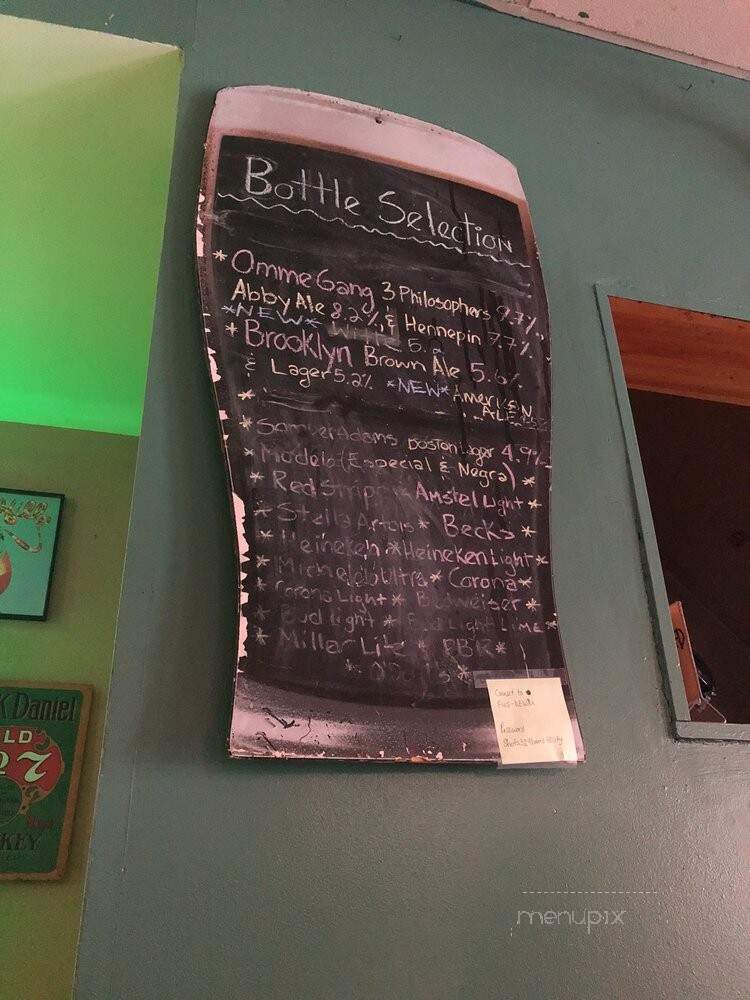 Bottle Selection
* OmmeGang 3 Philosophers 9.7%,
Abby Ale 8.2%, & Hennepin 7.7%.
*NEW* Witte 5.2
* Brooklyn Brown Ale 5.6%
& Lager 5.2% *NEW* American
* ALE
* Samuel Adams Boston Lager 4.9%
* Modelo (Especial & Negra) *
* Red Stripe * Amstel Light *
* Stella Artois * Becks *
* Heineken * Heineken Light *
* Michelob Ultra * Corona *
* Corona Light * Budweiser *
* Bud light * Bud Light Lime *
* Millar Lite * PBR *
* O'Doul's *
Connect to
Password
K Daniel
LD
7
KEY
menupix